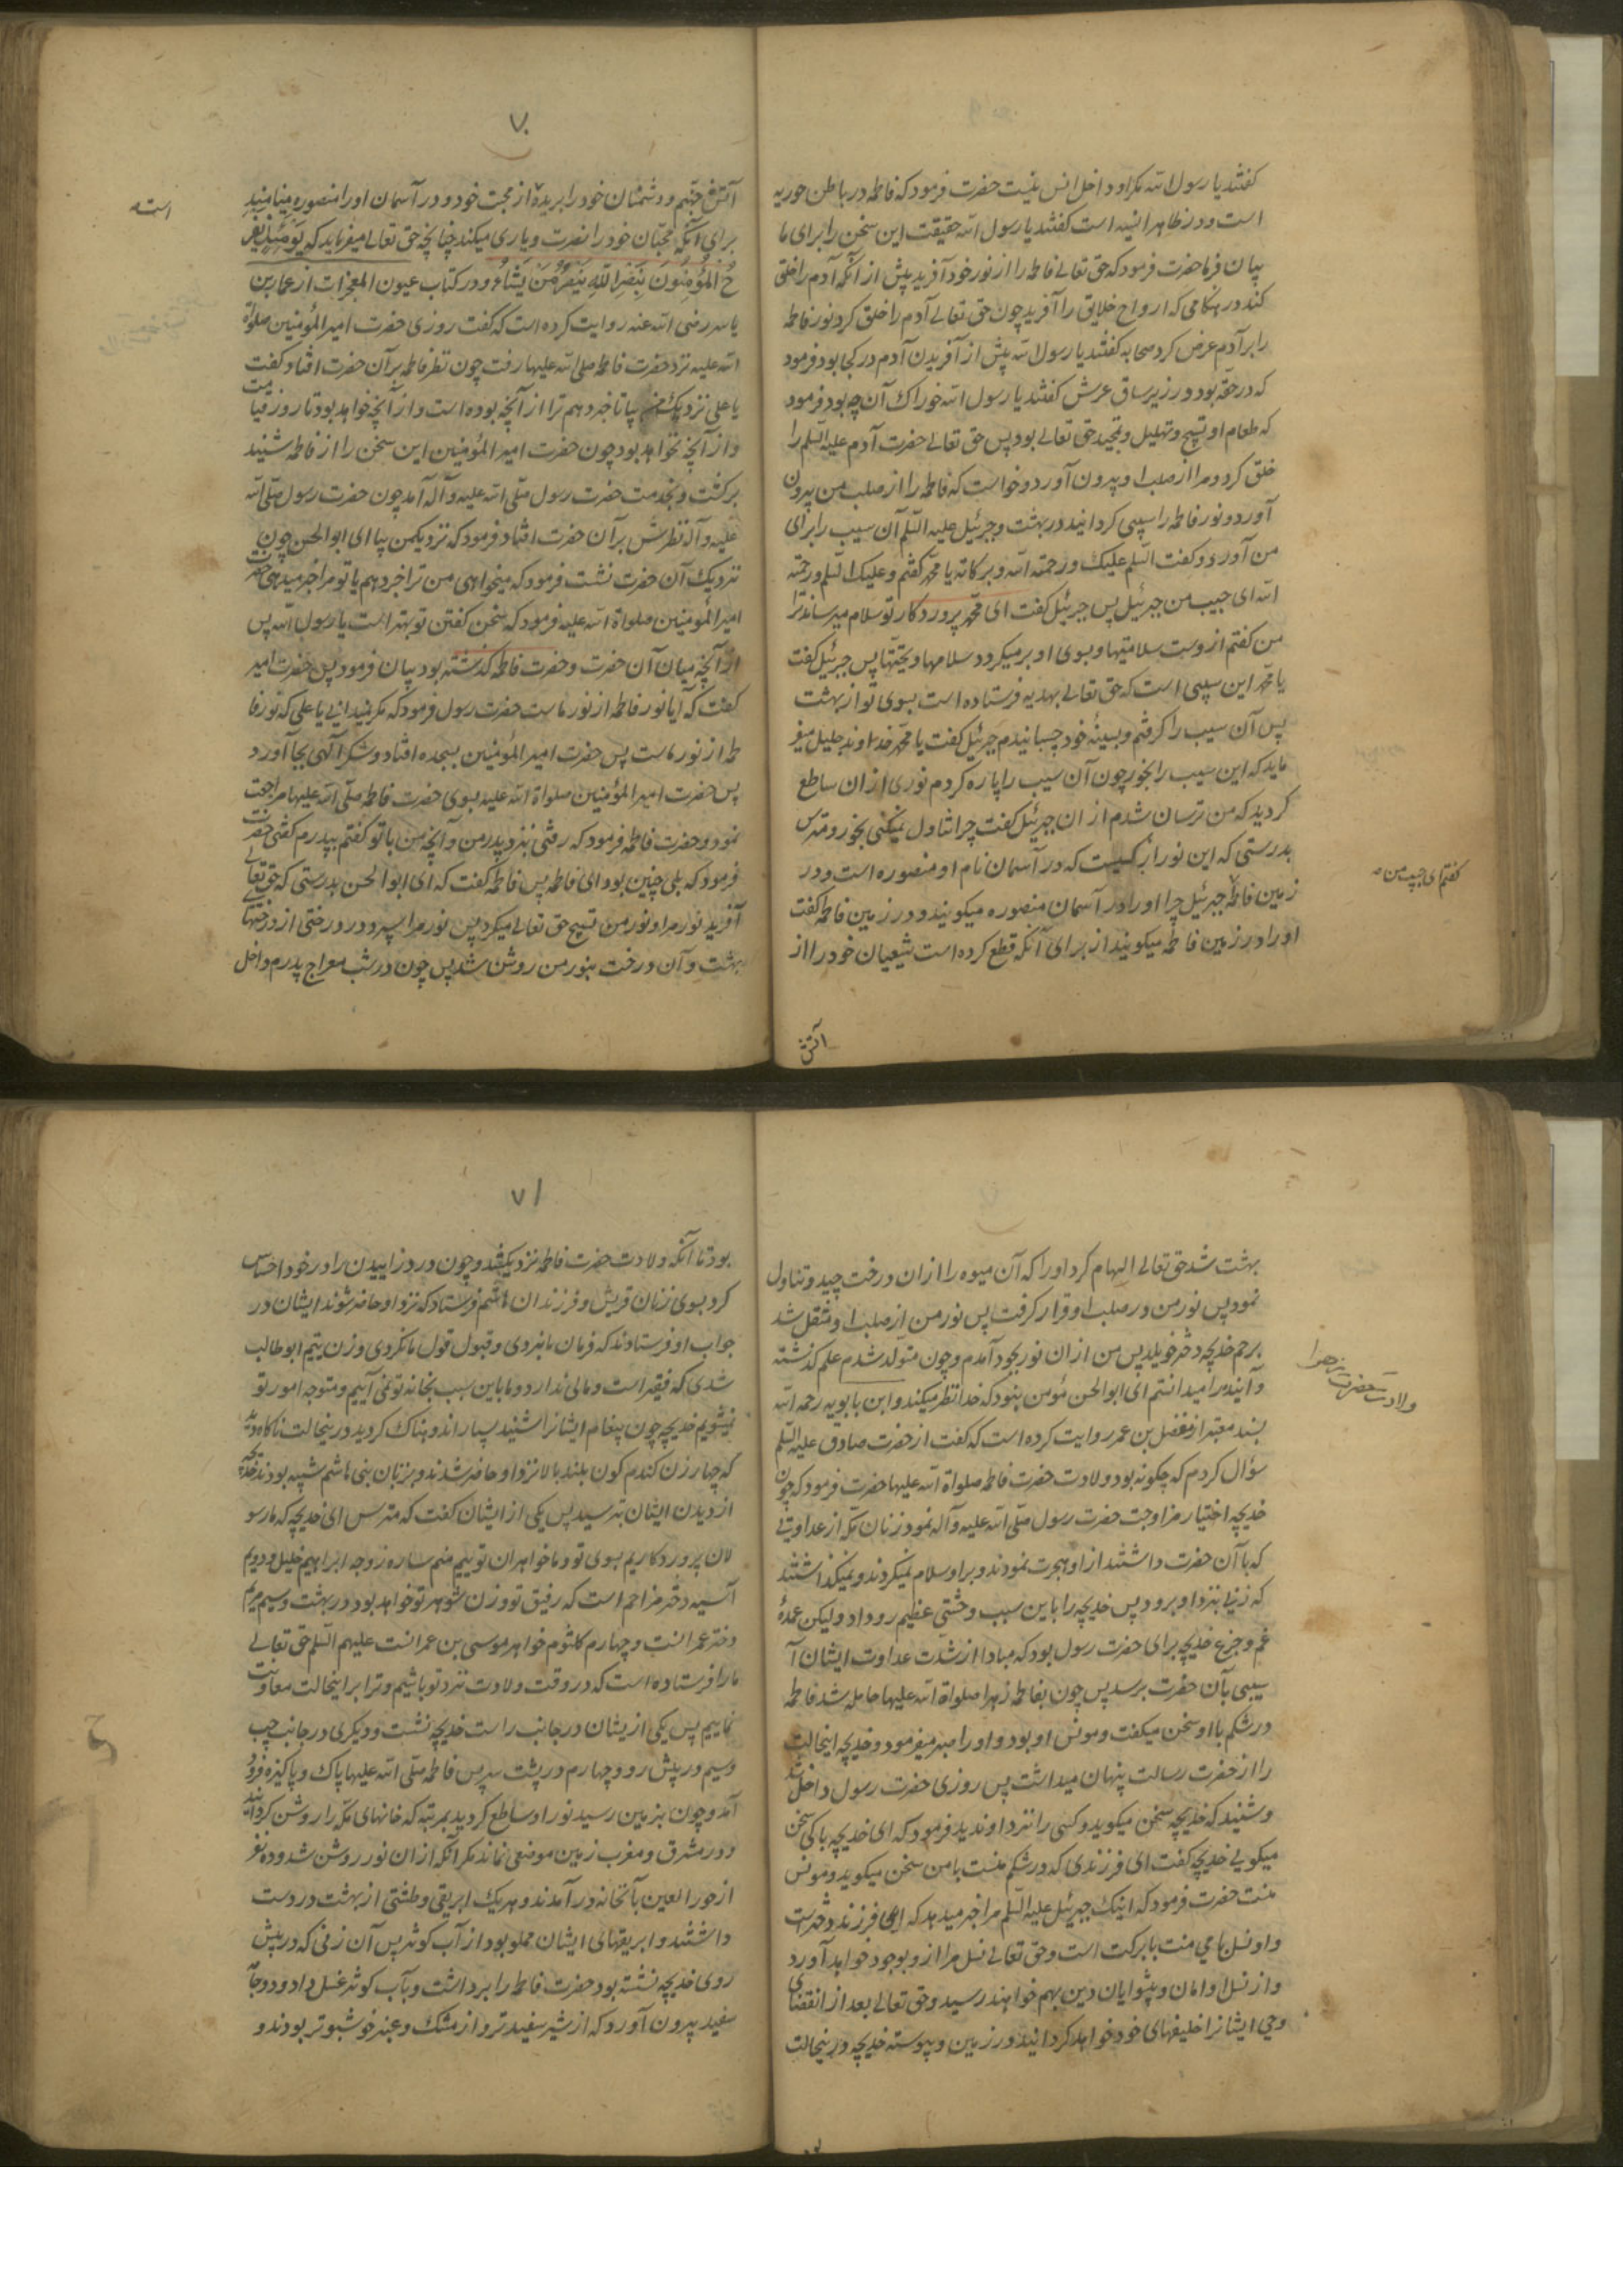 گفتند یا رسول الله مگر او داخل انس نیست حضرت فرمود که فاطمه در باطن حوریه
است و در ظاهر انسیه است گفتند یا رسول الله حقیقت این سخن را برای ما
بیان فرما حضرت فرمود که حق تعالی فاطمه را از نور خود آفرید پیش از آنکه آدم را خلق
کند در هنگامی که ارواح خلایق را آفرید چون حق تعالی آدم را خلق کرد نور فاطمه
را بر آدم عرض کرد صحابه گفتند یا رسول الله پیش از آفریدن آدم در کجا بود فرمود
که در حقه بود در زیر ساق عرش گفتند یا رسول الله خوراک آن چه بود فرمود
که طعام او تسبیح و تهلیل و تمجید حق تعالی بود پس حق تعالی حضرت آدم علیه السلم را
خلق کرد و مرا از صلب او بیرون آورد و خواست که فاطمه را از صلب من بیرون
آورد و نور فاطمه را سیبی گردانید در بهشت و جبرئیل علیه السلم آن سیب را برای
من آورد و گفت السلم علیک و رحمة الله و برکاته یا محمد گفتم و علیک السلم و رحمة
الله ای حبیب من جبرئیل پس جبرئیل گفت ای محمد پروردگار تو سلام میرساند ترا
من گفتم از وست سلامتیها و بسوی او بر میگردد سلامها و تحیتها پس جبرئیل گفت
یا محمد این سیبی است که حق تعالی بهدیه فرستاده است بسوی تو از بهشت
پس آن سیب را گرفتم و بسینهٔ خود چسبانیدم جبرئیل گفت یا محمد خداوند جلیل میفر
ماید که این سیب را بخور چون آن سیب را پاره کردم نوری از ان ساطع
گردید که من ترسان شدم از ان جبرئیل گفت چرا تناول نمیکنی بخور و مترس
بدرستی که این نور از کسیست که در آسمان نام او منصوره است و در
زمین فاطمه جبرئیل چرا او را در آسمان منصوره میگویند و در زمین فاطمه گفت
او را در زمین فاطمه میگویند از برای آنکه قطع کرده است شیعیان خود را از
گفتم ای حبیب من
آتش
۷۰
آتش جهنم و دشمنان خود را بریده از محبت خود و در آسمان او را منصوره مینامند
برای آنکه محبان خود را نصرت و یاری میکند چنانچه حق تعالی میفرماید که یَوْمَئِذٍ یَفْرَ
حُ الْمُؤْمِنُونَ بِنَصْرِ اللهِ یَنْصُرُ مَنْ یَشَاءُ و در کتاب عیون المعجزات از عمار بن
یاسر رضی الله عنه روایت کرده است که گفت روزی حضرت امیر المؤمنین صلوة
الله علیه نزد حضرت فاطمه صلی الله علیها رفت چون نظر فاطمه بر آن حضرت افتاد گفت
یا علی نزدیک من بیا تا خبر دهم ترا از آنچه بوده است و از آنچه خواهد بود تا روز قیامت
و از آنچه نخواهد بود چون حضرت امیر المؤمنین این سخن را از فاطمه شنید
برگشت و بخدمت حضرت رسول صلی الله علیه و آله آمد چون حضرت رسول صلی الله
علیه و آله نظرش بر آن حضرت افتاد فرمود که نزدیک من بیا ای ابو الحسن چون
نزدیک آن حضرت نشست فرمود که میخواهی من ترا خبر دهم یا تو مرا خبر میدهی حضرت
امیر المؤمنین صلواة الله علیه فرمود که سخن گفتن تو بهتر است یا رسول الله پس
از آنچه میان آن حضرت و حضرت فاطمه گذشته بود بیان فرمود پس حضرت امیر
گفت که آیا نور فاطمه از نور ماست حضرت رسول فرمود که مگر نمیدانی یا علی که نور فا
طمه از نور ماست پس حضرت امیر المؤمنین بسجده افتاد و شکر الهی بجا آورد
پس حضرت امیر المؤمنین صلواة الله علیه بسوی حضرت فاطمه صلی الله علیها مراجعت
نمود و حضرت فاطمه فرمود که رفتی نزد پدر من و آنچه من با تو گفتم بپدرم گفتی حضرت
فرمود که بلی چنین بود ای فاطمه پس فاطمه گفت که ای ابو الحسن بدرستی که حق تعالی
آفرید نور مرا و نور من تسبیح حق تعالی میکرد پس نور مرا سپرد در درختی از درختهای
بهشت و آن درخت بنور من روشن شد پس چون در شب معراج پدرم داخل
است
بهشت شد حق تعالی الهام کرد او را که آن میوه را از ان درخت چید و تناول
نمود پس نور من در صلب او قرار گرفت پس نور من از صلب او منتقل شد
برحم خدیجه دختر خویلد پس من از ان نور بوجود آمدم و چون متولد شدم علم گذشته
و آینده را میدانستم ای ابو الحسن مؤمن بنور که خدا نظر میکند و ابن بابویه رحمه الله
بسند معتبر از مفضل بن عمر روایت کرده است که گفت از حضرت صادق علیه السلم
سؤال کردم که چگونه بود ولادت حضرت فاطمه صلواة الله علیها حضرت فرمود که چون
خدیجه اختیار مزاوجت حضرت رسول صلی الله علیه و آله نمود زنان مکه از عداوتی
که با آن حضرت داشتند از او هجرت نمودند و بر او سلام نمیکردند و نمیگذاشتند
که زنی بنزد او برود پس خدیجه را باین سبب وحشتی عظیم رو داد ولیکن عمدهٔ
غم و جزع خدیجه برای حضرت رسول بود که مبادا از شدت عداوت ایشان آ
سیبی بآن حضرت برسد پس چون بفاطمه زهرا صلواة الله علیها حامله شد فاطمه
در شکم با او سخن میگفت و مونس او بود و او را صبر میفرمود و خدیجه اینحالت
را از حضرت رسالت پنهان میداشت پس روزی حضرت رسول داخل شد
و شنید که خدیجه سخن میگوید و کسی را نزد او ندید فرمود که ای خدیجه با کی سخن
میگویی خدیجه گفت ای فرزندی که در شکم منست با من سخن میگوید و مونس
منست حضرت فرمود که اینک جبرئیل علیه السلم مرا خبر میدهد که این فرزند دختر است
و او نسل بابرکت است و حق تعالی نسل مرا از و بوجود خواهد آورد
و از نسل او امامان و پیشوایان دین بهم خواهند رسید و حق تعالی بعد از انقضای
وحی ایشانرا خلیفهای خود خواهد گردانید در زمین و پیوسته خدیجه در اینحالت
ولادت حضرت زهرا
۷۱
بود تا آنکه ولادت حضرت فاطمه نزدیک شد و چون درد زاییدن را در خود احساس
کرد بسوی زنان قریش و فرزندان هاشم فرستاد که نزد او حاضر شوند ایشان در
جواب او فرستادند که فرمان ما نبردی و قبول قول ما نکردی و زن یتیم ابو طالب
شدی که فقیر است و مالی ندارد و ما باین سبب بخانه تو نمی آییم و متوجه امور تو
نمیشویم خدیجه چون پیغام ایشانرا شنید بسیار اندوهناک گردید در اینحالت ناگاه دید
که چهار زن گندم گون بلند بالا نزد او حاضر شدند و بزنان بنی هاشم شبیه بودند خدیجه
از دیدن ایشان بترسید پس یکی از ایشان گفت که مترس ای خدیجه که ما رسو
لان پروردگاریم بسوی تو و ما خواهران توییم منم ساره زوجه ابراهیم خلیل و دویم
آسیه دختر مزاحم است که رفیق تو و زن شوهر تو خواهد بود در بهشت و سیم مریم
دختر عمرانست و چهارم کلثوم خواهر موسی بن عمرانست علیهم السلم حق تعالی
ما را فرستاده است که در وقت ولادت نزد تو باشیم و ترا بر اینحالت معاونت
نماییم پس یکی از یشان در جانب راست خدیجه نشست و دیگری در جانب چپ
و سیم در پیش رو و چهارم در پشت سر پس فاطمه صلی الله علیها پاک و پاکیزه فرود
آمد و چون بزمین رسید نور او ساطع گردید بمرتبه که خانهای مکه را روشن گردانید
و در مشرق و مغرب زمین موضعی نماند مگر آنکه از ان نور روشن شد و ده نفر
از حور العین بآنخانه در آمدند و هر یک ابریقی و طشتی از بهشت در دست
داشتند و ابریقهای ایشان مملو بود از آب کوثر پس آن زنی که در پیش
روی خدیجه نشسته بود حضرت فاطمه را برداشت و بآب کوثر غسل داد و دو جا
سفید بیرون آورد که از شیر سفیدتر و از مشک و عنبر خوشبوتر بودند و